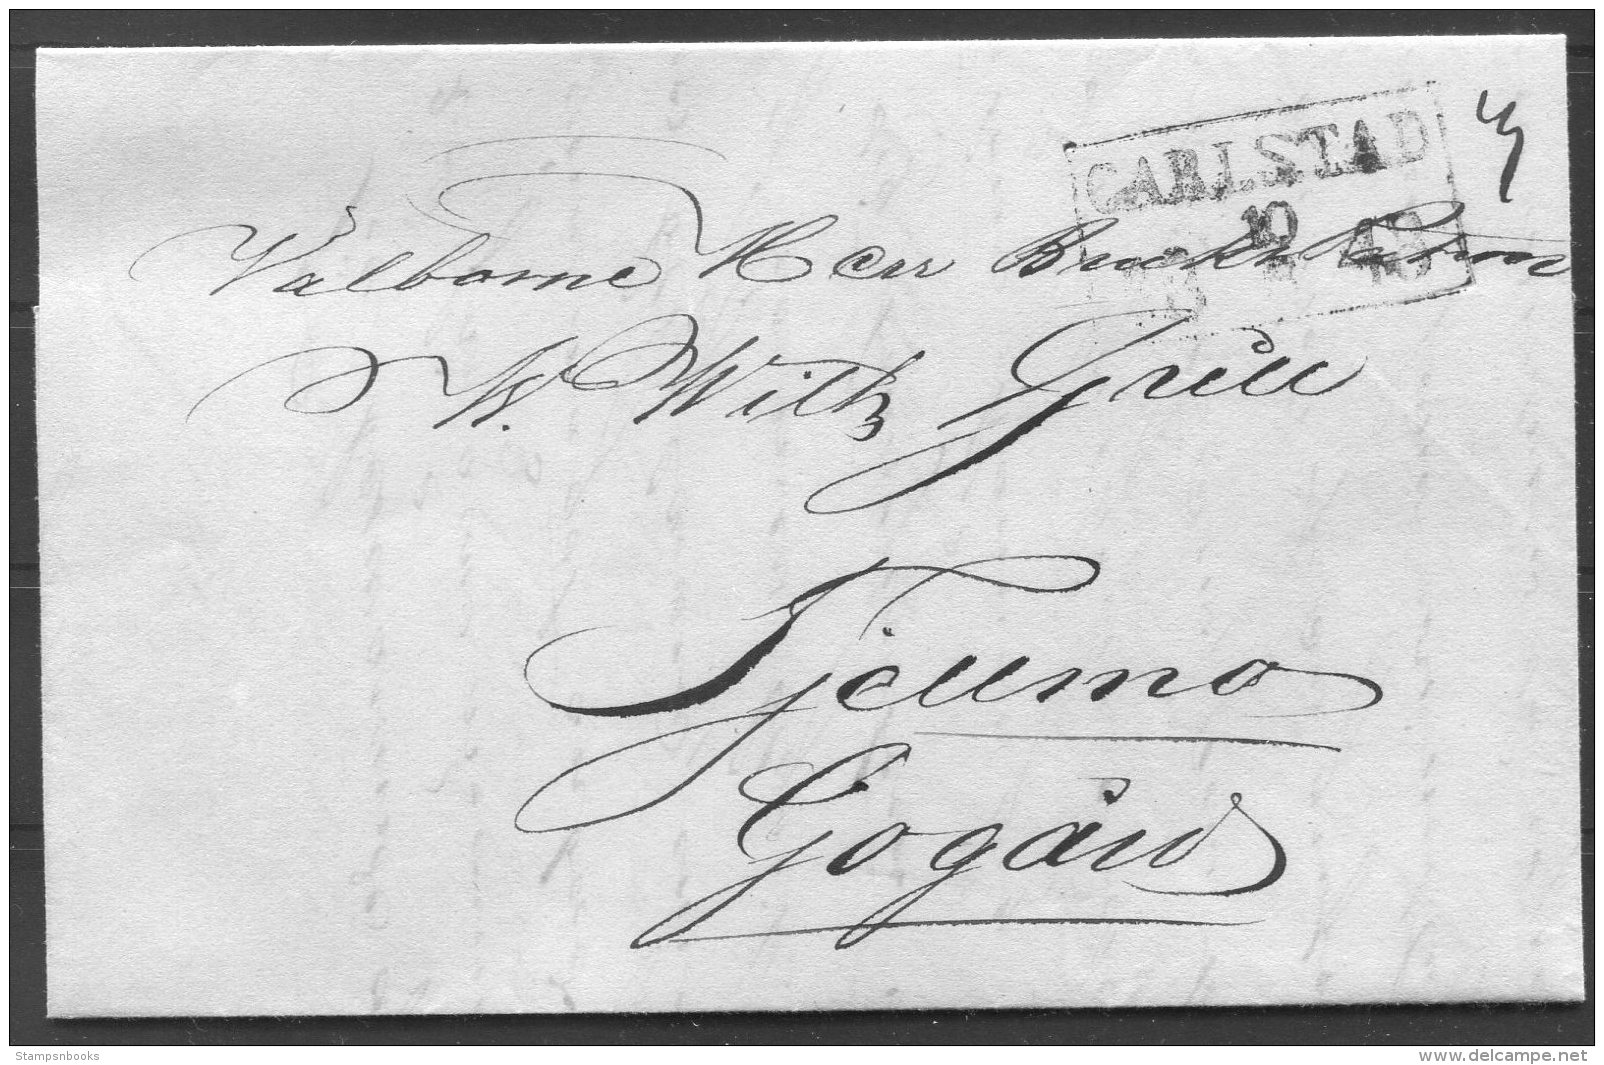 CARLSTAD
10
3 43
Välborne Herr Brukspatron
W. Willh Grill
Gogård
Stampsnbooks
www.delcampe.net